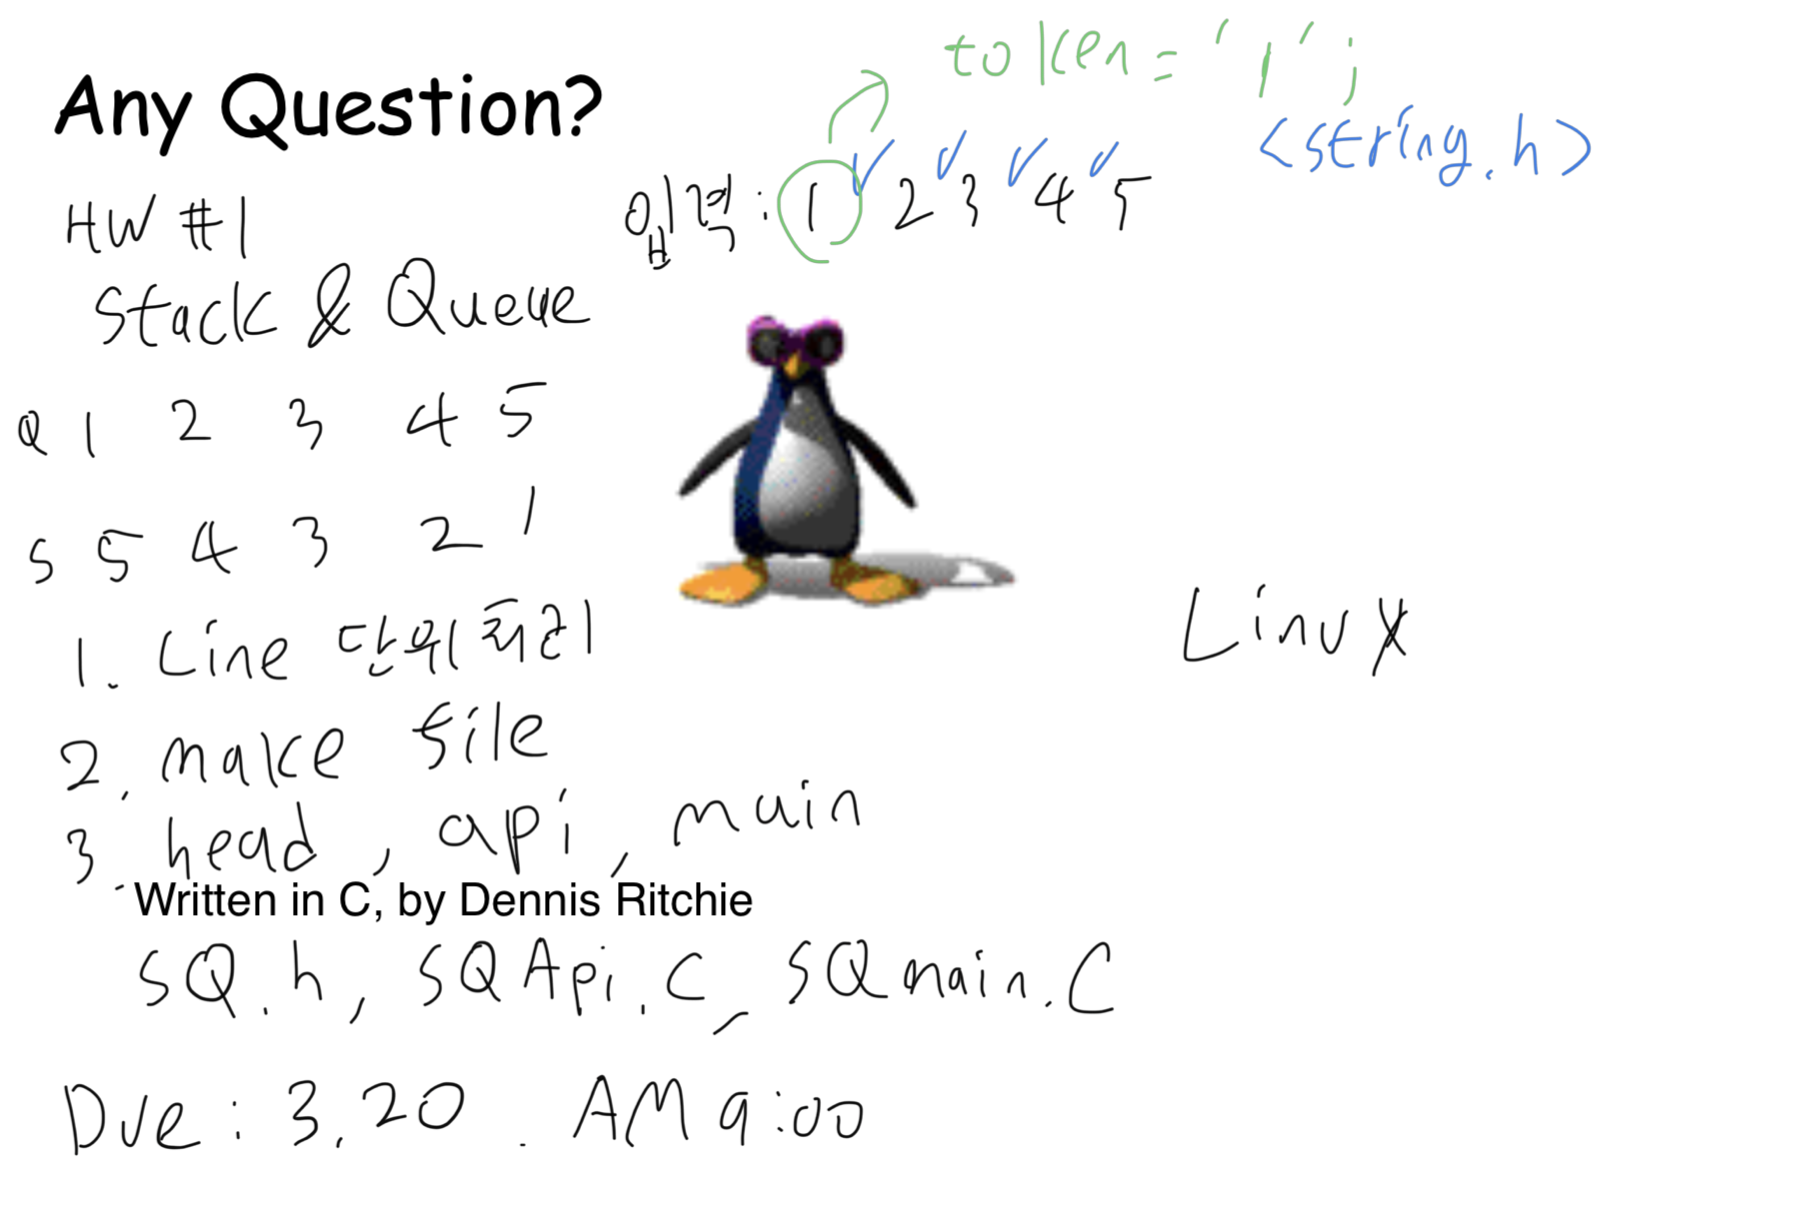 Any Question?
token = '1';
<string.h>
HW #1
입력 : 1 2 3 4 5
Stack & Queue
Q 1 2 3 4 5
S 5 4 3 2 1
1. Line 단위 처리
2. make file
3. head, api, main
Linux
Written in C, by Dennis Ritchie
SQ.h, SQApi.c, SQmain.c
Due : 3.20. AM 9:00